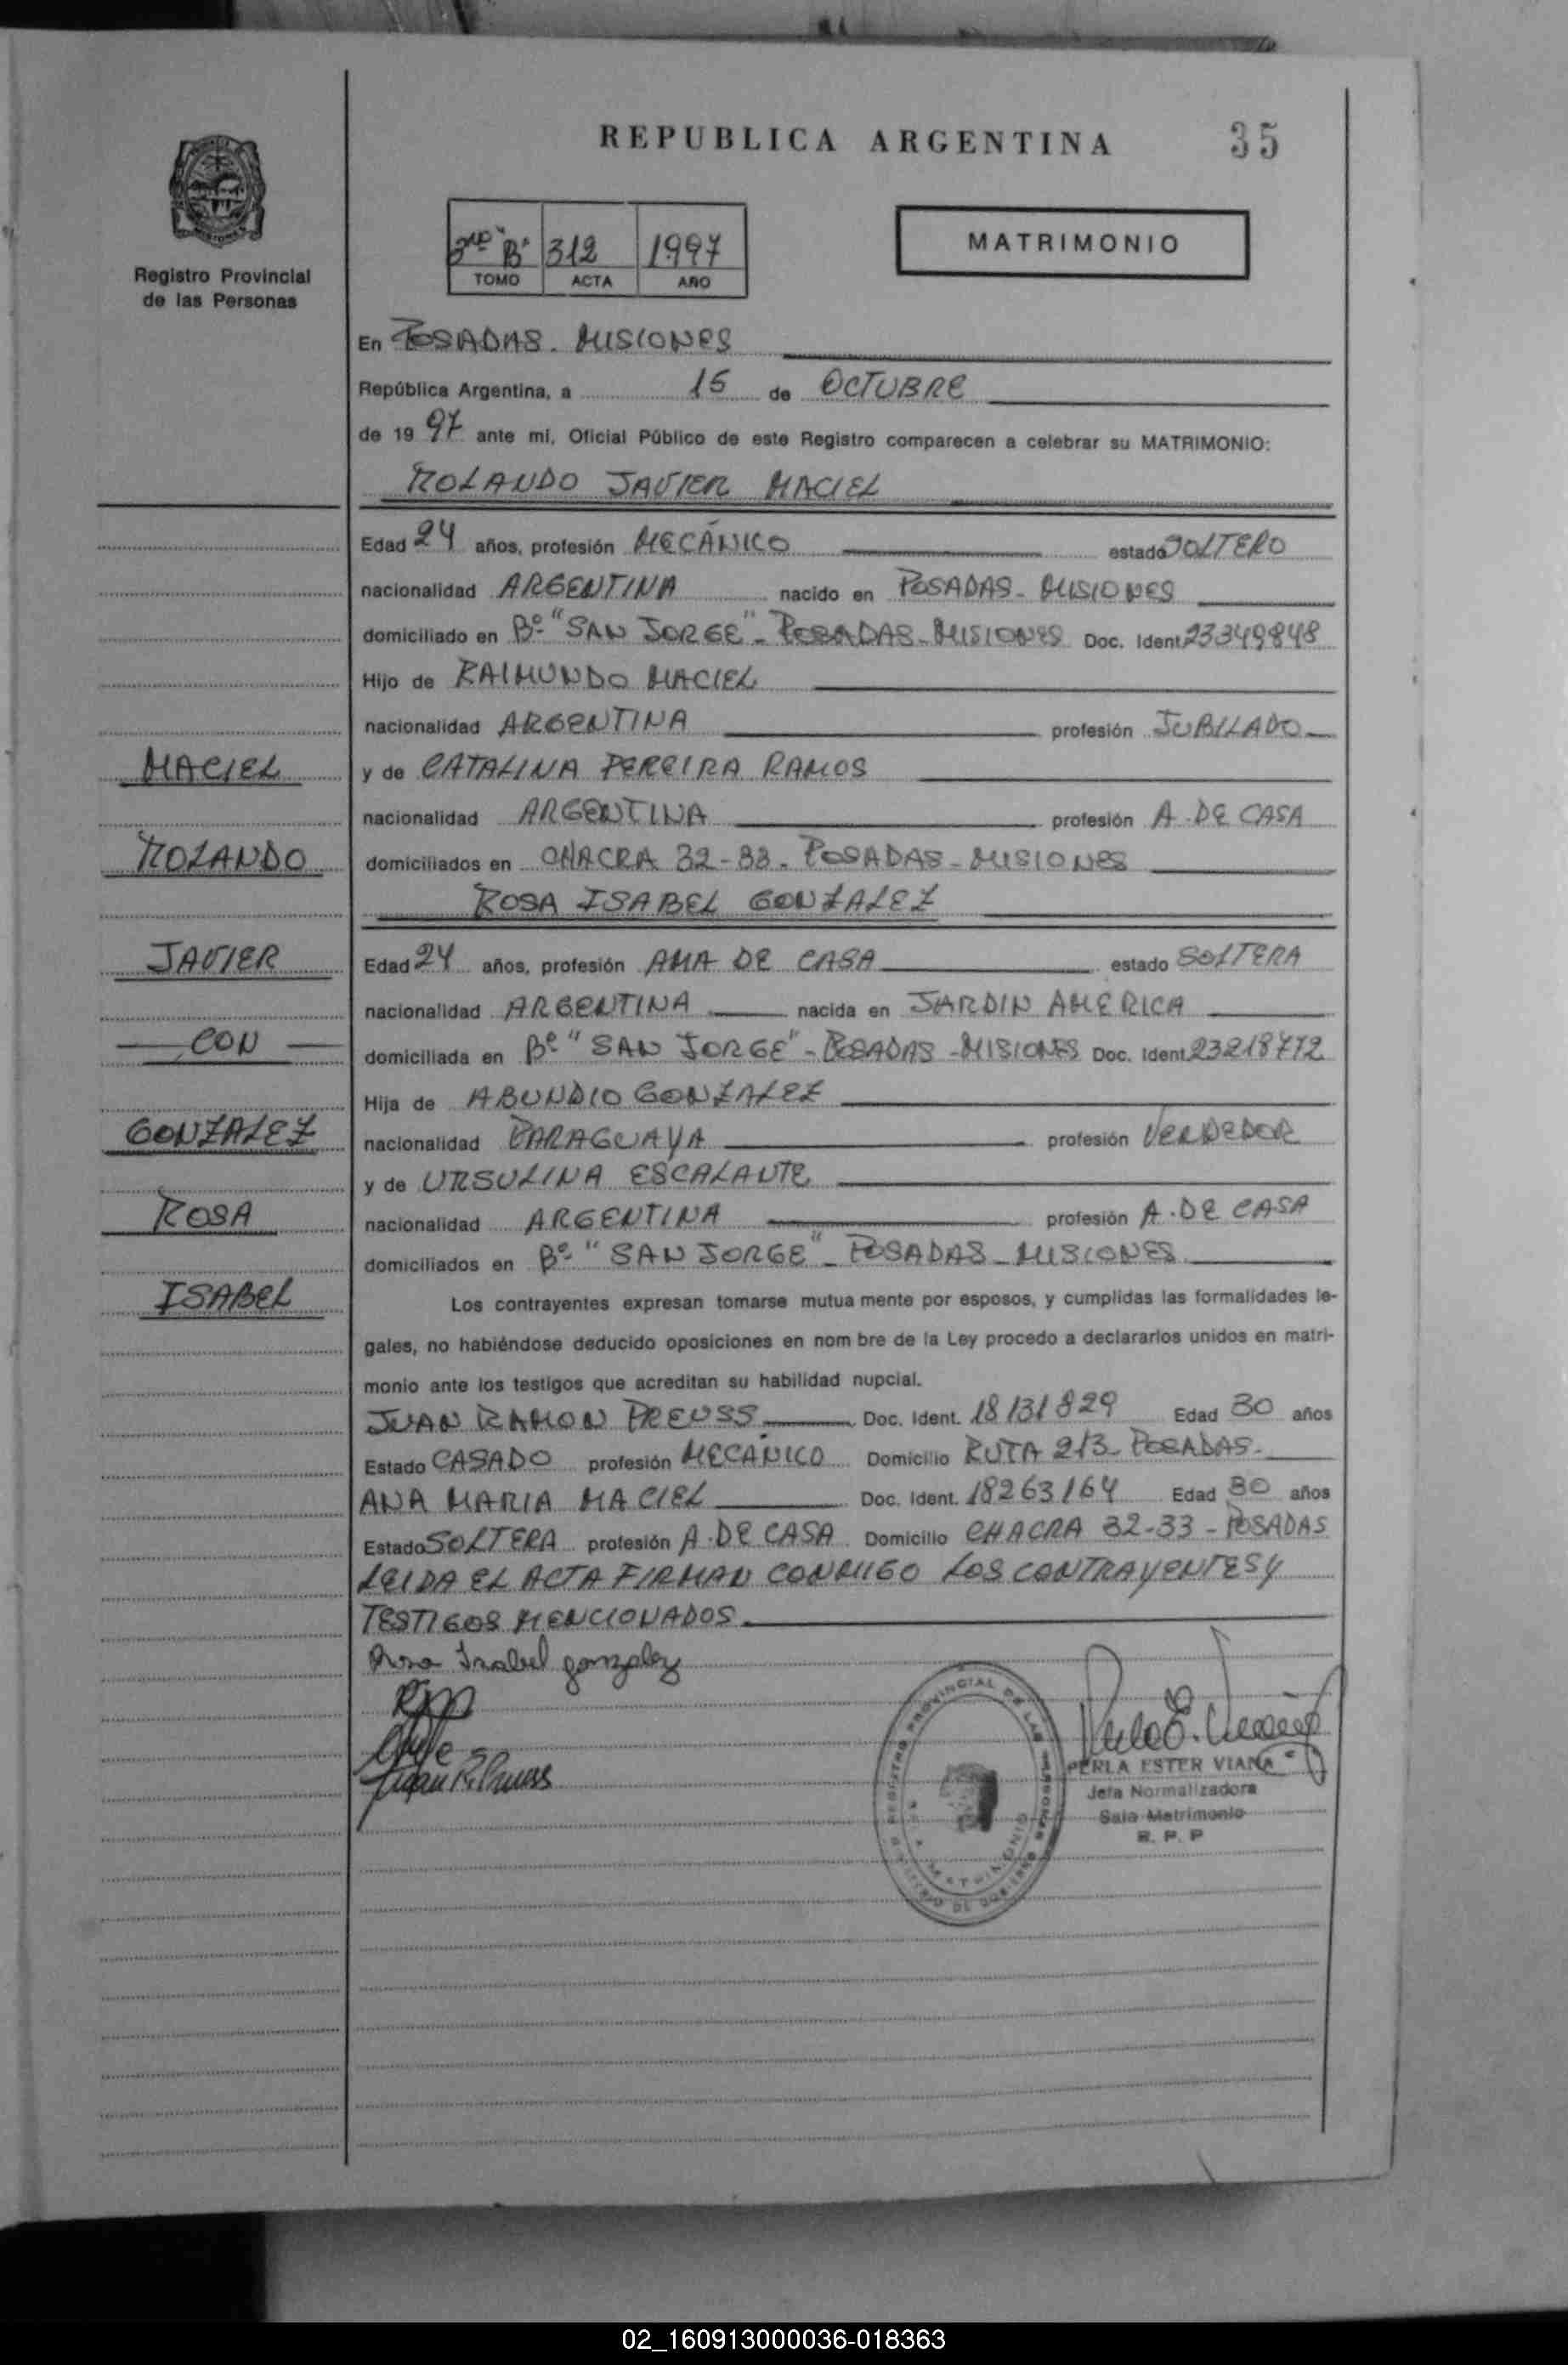 REPUBLICA ARGENTINA
35
Registro Provincial
de las Personas
2do "B" 312 1997
TOMO ACTA AÑO
MATRIMONIO
En POSADAS - MISIONES
República Argentina, a 15 de OCTUBRE
de 19 97 ante mi, Oficial Público de este Registro comparecen a celebrar su MATRIMONIO:
ROLANDO JAVIER MACIEL
Edad 24 años, profesión MECÁNICO estado SOLTERO
nacionalidad ARGENTINA nacido en POSADAS - MISIONES
domiciliado en Bº "SAN JORGE" - POSADAS - MISIONES Doc. Ident 23349848
Hijo de RAIMUNDO MACIEL
nacionalidad ARGENTINA profesión JUBILADO
y de CATALINA PEREIRA RAMOS
nacionalidad ARGENTINA profesión A. DE CASA
domiciliados en CHACRA 32-33 - POSADAS - MISIONES
ROSA ISABEL GONZALEZ
Edad 24 años, profesión AMA DE CASA estado SOLTERA
nacionalidad ARGENTINA nacida en JARDIN AMERICA
domiciliada en Bº "SAN JORGE" - POSADAS - MISIONES Doc. Ident 23218772
Hija de ABUNDIO GONZALEZ
nacionalidad PARAGUAYA profesión VENDEDOR
y de URSULINA ESCALANTE
nacionalidad ARGENTINA profesión A. DE CASA
domiciliados en Bº "SAN JORGE" - POSADAS - MISIONES
MACIEL
ROLANDO
JAVIER
CON
GONZALEZ
ROSA
ISABEL
Los contrayentes expresan tomarse mutua mente por esposos, y cumplidas las formalidades le-
gales, no habiéndose deducido oposiciones en nom bre de la Ley procedo a declararlos unidos en matri-
monio ante los testigos que acreditan su habilidad nupcial.
JUAN RAMON PREUSS Doc. Ident. 18131829 Edad 30 años
Estado CASADO profesión MECÁNICO Domicilio RUTA 213 - POSADAS -
ANA MARIA MACIEL Doc. Ident. 18263164 Edad 30 años
Estado SOLTERA profesión A. DE CASA Domicilio CHACRA 32-33 - POSADAS
LEIDA EL ACTA FIRMAN CONMIGO LOS CONTRAYENTES Y
TESTIGOS MENCIONADOS
Rosa Isabel gonzalez
Juan R. Preuss
REGISTRO PROVINCIAL DE LAS PERSONAS
MATRIMONIO
PERLA ESTER VIANA
Jefa Normalizadora
Sala Matrimonio
R. P. P
02_160913000036-018363